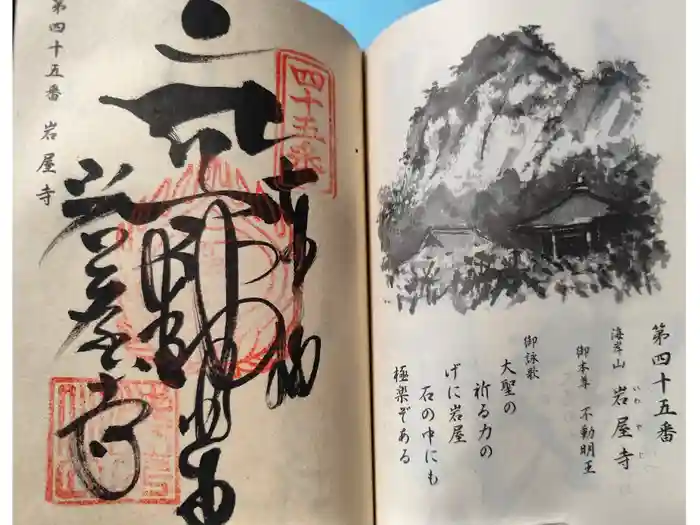 第四十五番
海岸山 岩屋寺
いわやじ
御本尊 不動明王
御詠歌
大聖の
祈る力の
げに岩屋
石の中にも
極楽ぞある
四十五番
奉納
岩屋寺
第四十五番 岩屋寺